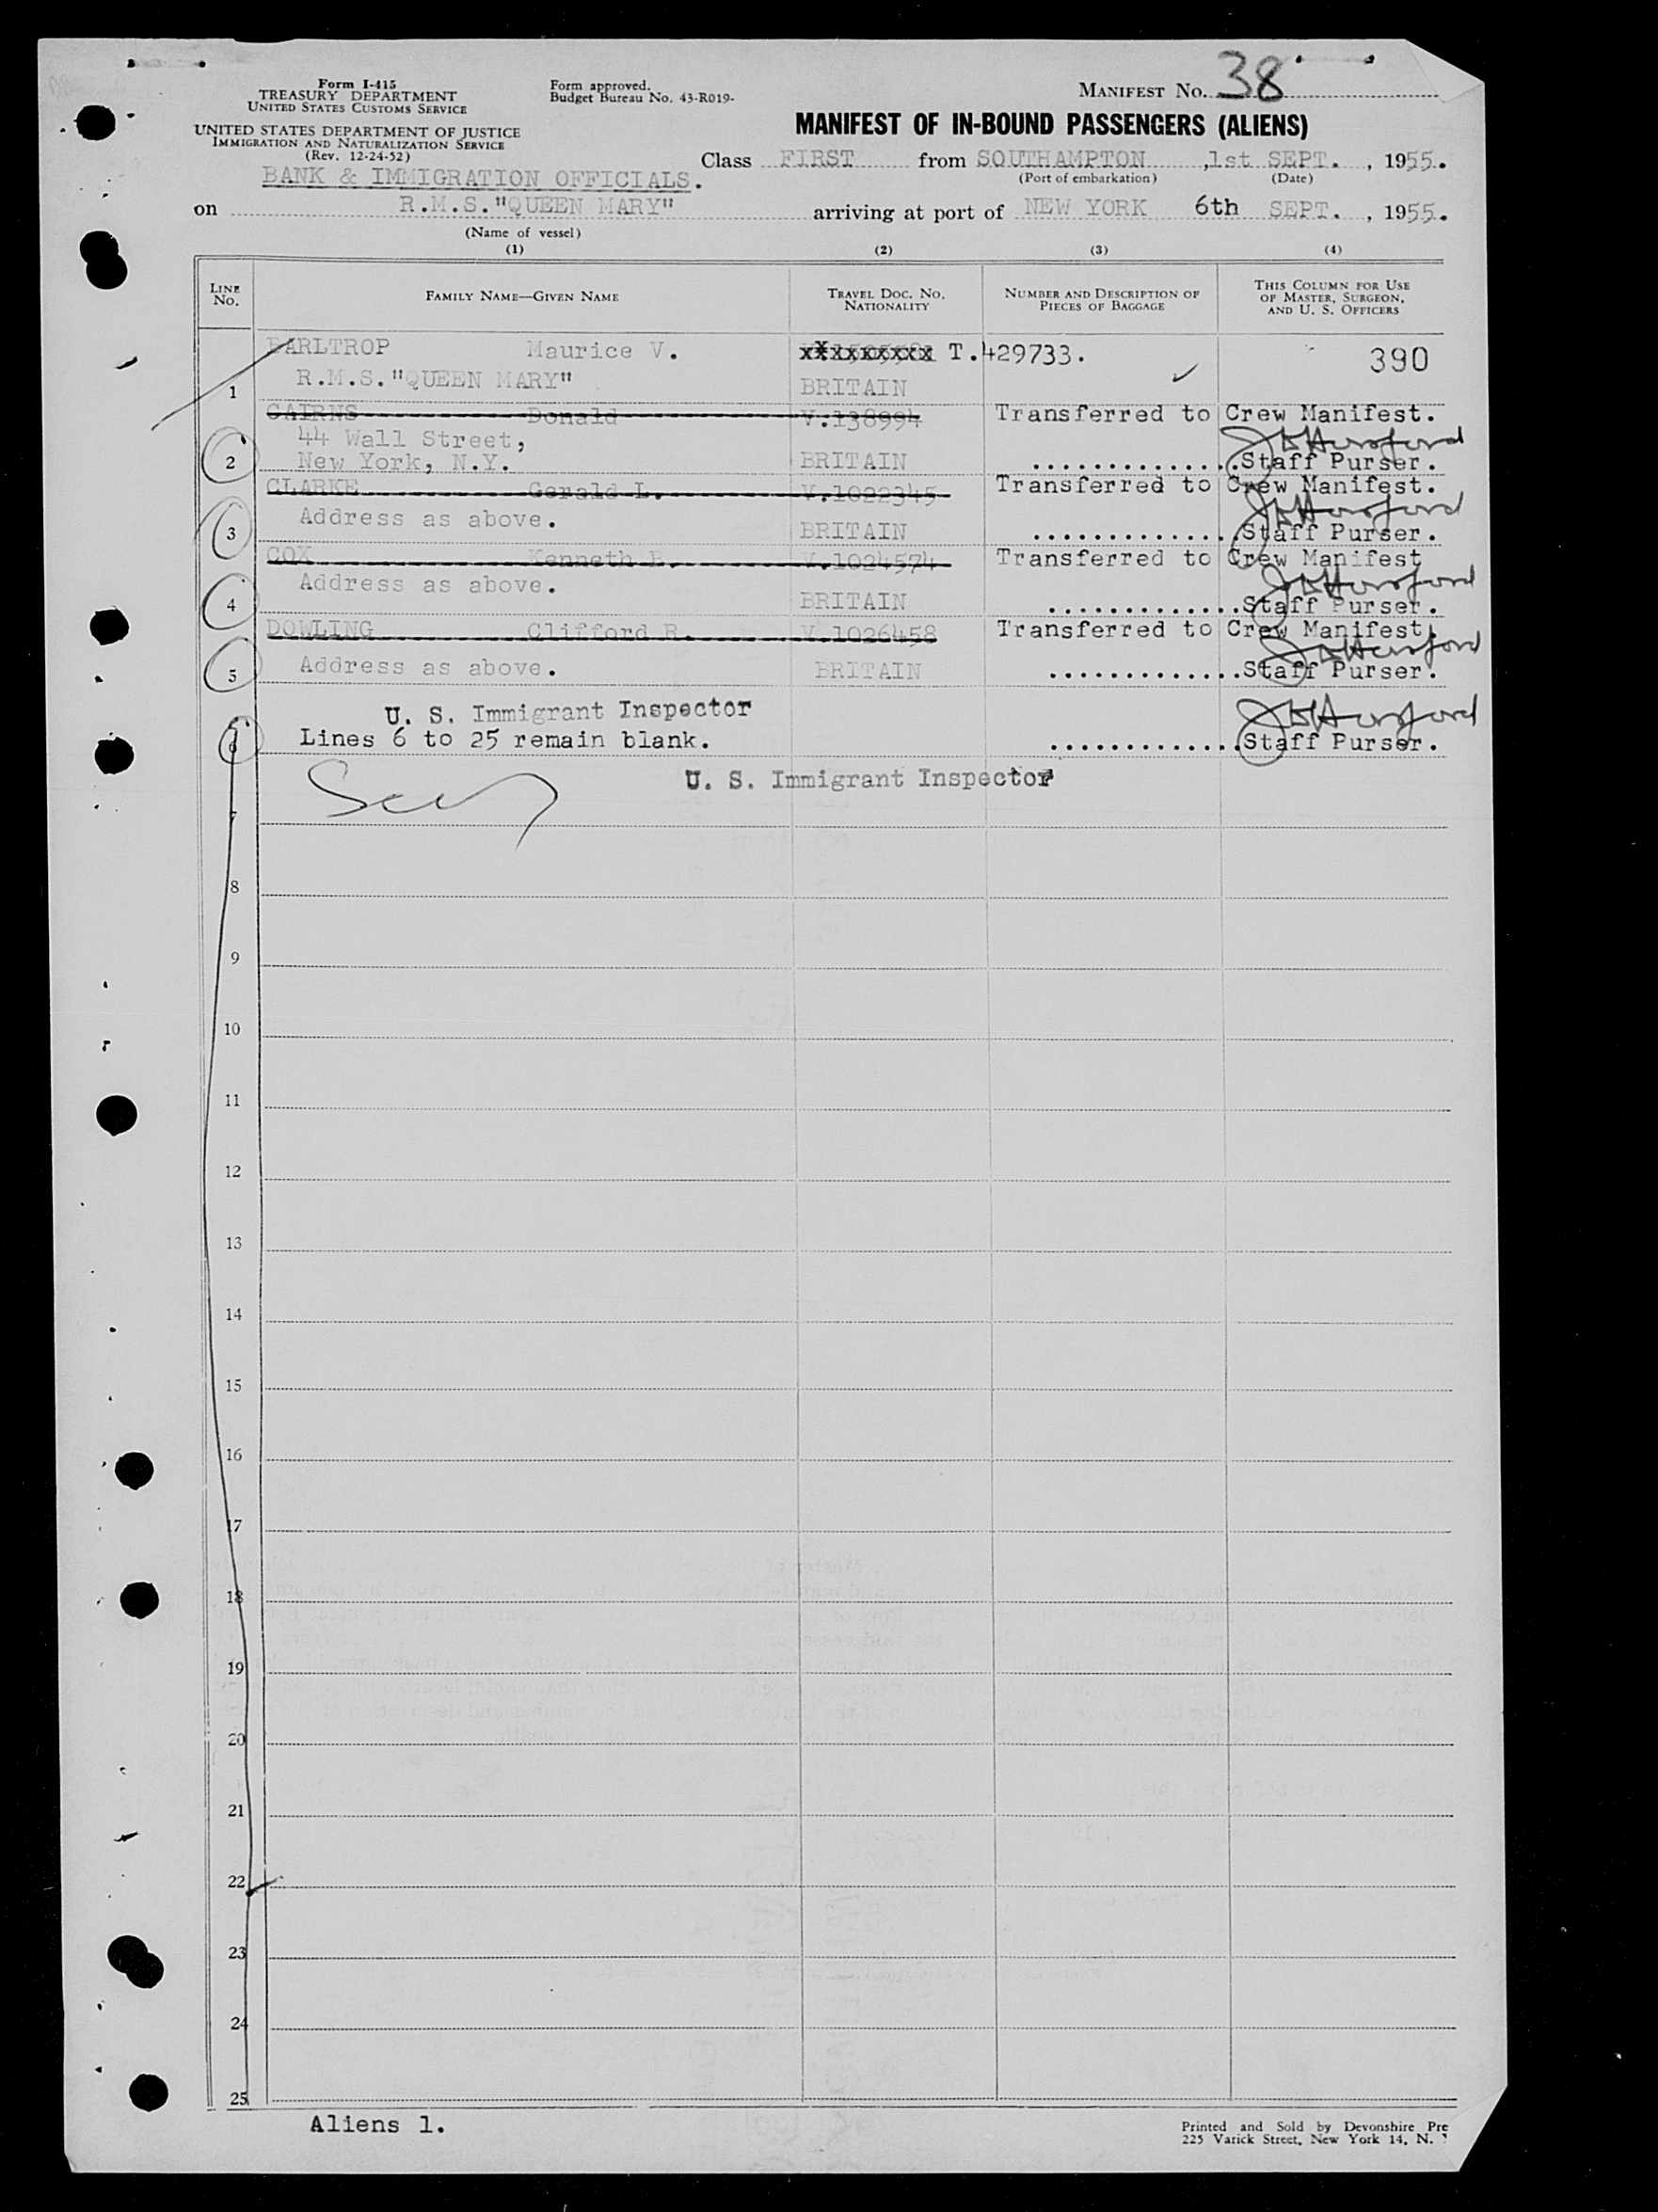 Form I-415
TREASURY DEPARTMENT
UNITED STATES CUSTOMS SERVICE
UNITED STATES DEPARTMENT OF JUSTICE
IMMIGRATION AND NATURALIZATION SERVICE
(Rev. 12-24-52)
Form approved.
Budget Bureau No. 43-R019-
MANIFEST NO. 38
MANIFEST OF IN-BOUND PASSENGERS (ALIENS)
Class FIRST from SOUTHAMPTON ,1st SEPT. , 1955.
(Port of embarkation) (Date)
BANK & IMMIGRATION OFFICIALS.
on R.M.S."QUEEN MARY" arriving at port of NEW YORK 6th SEPT. , 1955.
(Name of vessel)
(1) (2) (3) (4)
LINE No. FAMILY NAME—GIVEN NAME TRAVEL DOC. NO. NATIONALITY NUMBER AND DESCRIPTION OF PIECES OF BAGGAGE THIS COLUMN FOR USE OF MASTER, SURGEON, AND U. S. OFFICERS
BARLTROP Maurice V. T.429733. 390
1 R.M.S."QUEEN MARY" BRITAIN
CAIRNS Donald V.138994 Transferred to Crew Manifest.
44 Wall Street,
2 New York, N.Y. BRITAIN .............Staff Purser.
CLARKE Gerald L. V.1022345 Transferred to Crew Manifest.
Address as above.
3 BRITAIN .............Staff Purser.
COX Kenneth B. V.1024574 Transferred to Crew Manifest
Address as above.
4 BRITAIN .............Staff Purser.
DOWLING Clifford R. V.1026458 Transferred to Crew Manifest.
5 Address as above. BRITAIN .............Staff Purser.
U. S. Immigrant Inspector
6 Lines 6 to 25 remain blank. .............Staff Purser.
U. S. Immigrant Inspector
7
8
9
10
11
12
13
14
15
16
17
18
19
20
21
22
23
24
25
Aliens 1.
Printed and Sold by Devonshire Pre
225 Varick Street, New York 14, N. Y